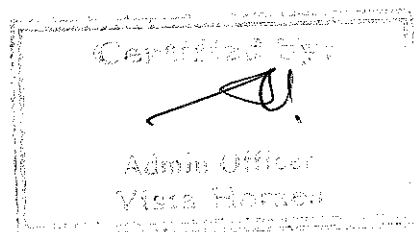 Certified by:
Admin Officer
Vista Homes